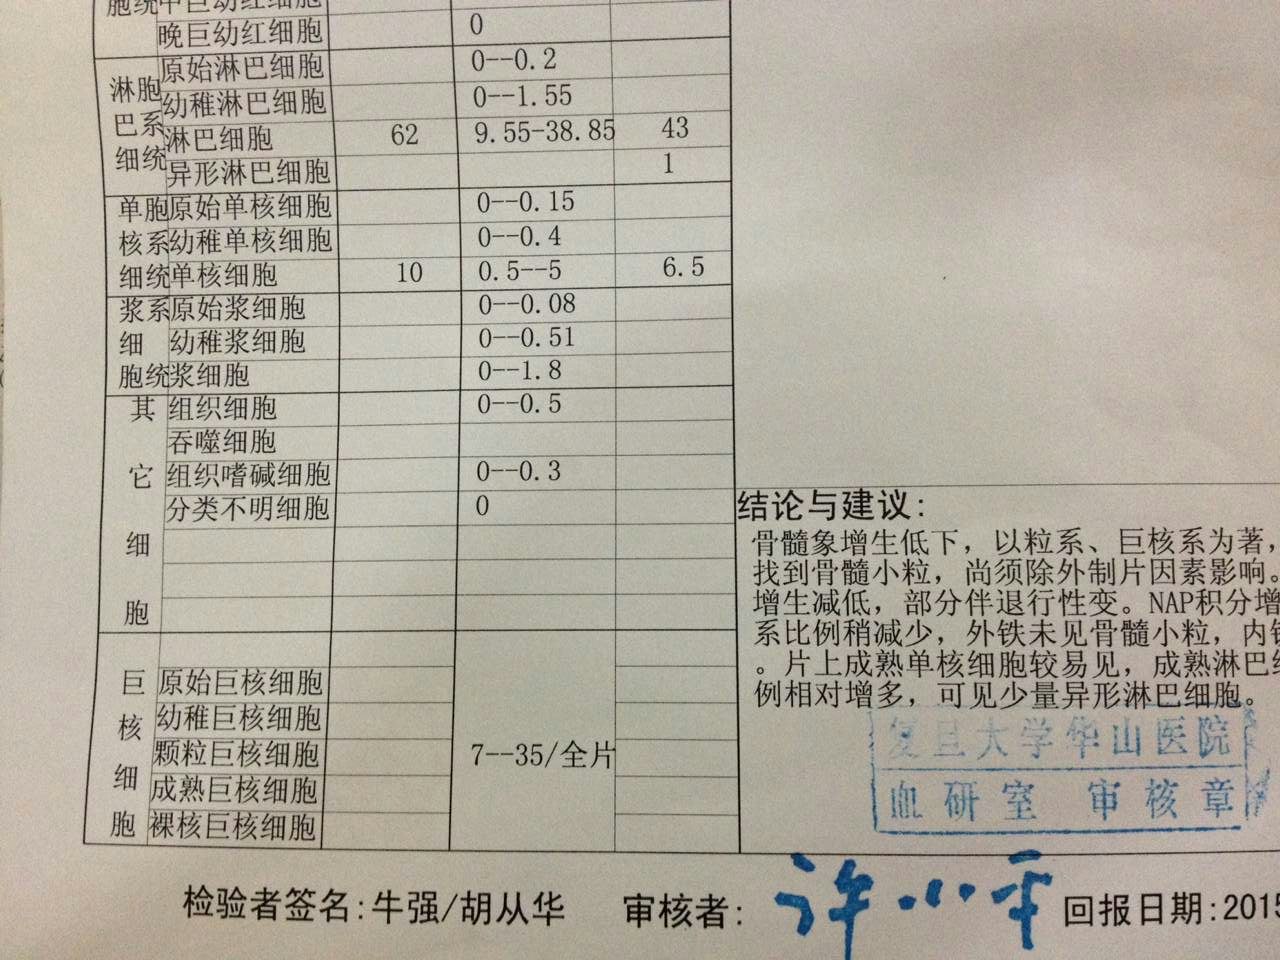 胞统中巨幼红细胞
晚巨幼红细胞 0
淋胞 原始淋巴细胞 0--0.2
巴系 幼稚淋巴细胞 0--1.55
细统 淋巴细胞 62 9.55-38.85 43
异形淋巴细胞 1
单胞 原始单核细胞 0--0.15
核系 幼稚单核细胞 0--0.4
细统 单核细胞 10 0.5--5 6.5
浆系 原始浆细胞 0--0.08
细 幼稚浆细胞 0--0.51
胞统 浆细胞 0--1.8
其 组织细胞 0--0.5
吞噬细胞
它 组织嗜碱细胞 0--0.3
分类不明细胞 0
细
胞
巨 原始巨核细胞
核 幼稚巨核细胞
颗粒巨核细胞 7--35/全片
细 成熟巨核细胞
胞 裸核巨核细胞
结论与建议:
骨髓象增生低下，以粒系、巨核系为著，
找到骨髓小粒，尚须除外制片因素影响。
增生减低，部分伴退行性变。NAP积分增
系比例稍减少，外铁未见骨髓小粒，内铁
。片上成熟单核细胞较易见，成熟淋巴细
例相对增多，可见少量异形淋巴细胞。
复旦大学华山医院
血研室 审核章
检验者签名:牛强/胡从华 审核者: 许小平 回报日期:2015